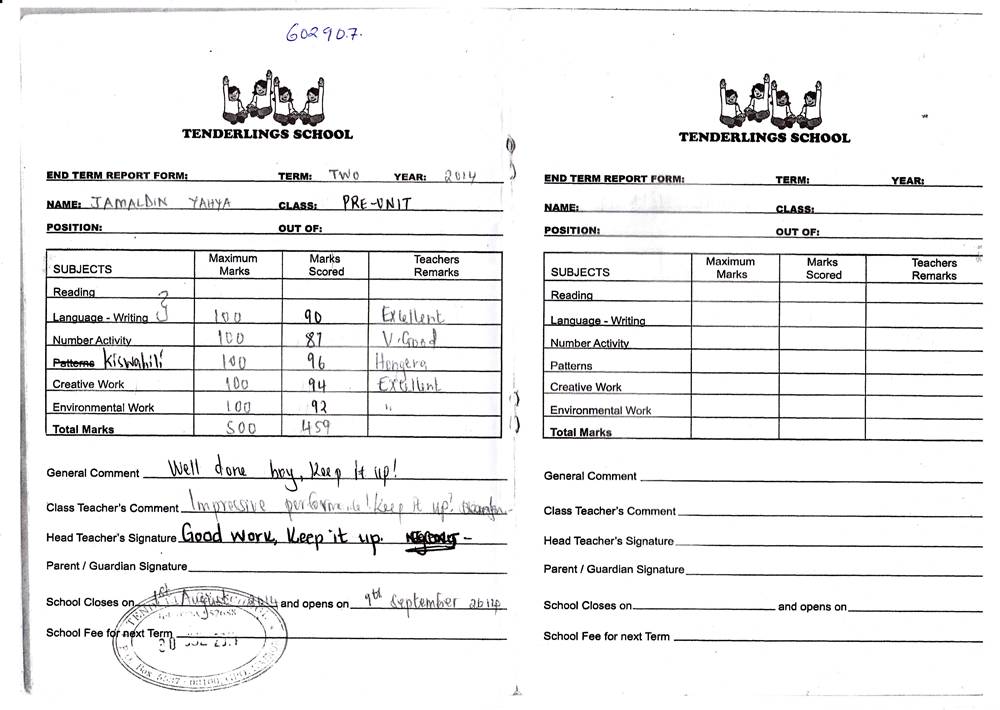 602907.
TENDERLINGS SCHOOL
END TERM REPORT FORM: TERM: TWO YEAR: 2014
NAME: JAMALDIN YAHYA CLASS: PRE-UNIT
POSITION: OUT OF:
SUBJECTS Maximum Marks Marks Scored Teachers Remarks
Reading
Language - Writing 100 90 Excellent
Number Activity 100 87 V.Good
Patterns Kiswahili 100 96 Hongera
Creative Work 100 94 Excellent
Environmental Work 100 92 "
Total Marks 500 459
General Comment Well done boy, keep it up!
Class Teacher's Comment Impressive performance! keep it up!
Head Teacher's Signature Good work, keep it up.
Parent / Guardian Signature
School Closes on 1st August 2014 and opens on 9th September 2014
School Fee for next Term
TENDERLINGS SCHOOL
END TERM REPORT FORM: TERM: YEAR:
NAME: CLASS:
POSITION: OUT OF:
SUBJECTS Maximum Marks Marks Scored Teachers Remarks
Reading
Language - Writing
Number Activity
Patterns
Creative Work
Environmental Work
Total Marks
General Comment
Class Teacher's Comment
Head Teacher's Signature
Parent / Guardian Signature
School Closes on and opens on
School Fee for next Term